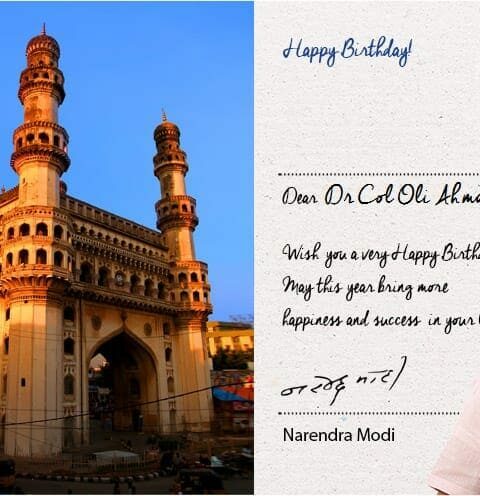 Happy Birthday!
Dear Dr Col Oli Ahm
Wish you a very Happy Birthd
May this year bring more
happiness and success in your
Narendra Modi